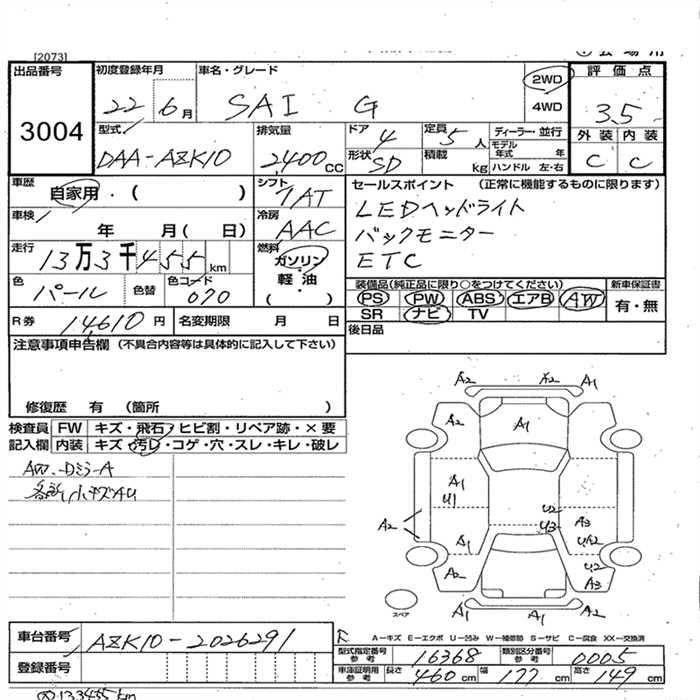 [2073]
出品番号
3004
初度登録年月
22 6月
車名・グレード
SAI G
2WD
4WD
評価点
3.5
外装 内装
C C
型式
DAA-AZK10
排気量
2,400cc
ドア 4
形状 SD
定員 5人
積載 kg
ディーラー・並行
モデル年式 年
ハンドル 左・右
車歴 自家用・( )
シフト 7AT
セールスポイント (正常に機能するものに限ります)
LEDヘッドライト
バックモニター
ETC
車検 年 月( 日)
冷房 AAC
走行 13万3千455km
燃料 ガソリン・軽油・( )
色 パール 色替
色コード 070
装備品(純正品に限り○をつけてください)
PS PW ABS エアB AW
SR ナビ TV
新車保証書
有・無
R券 14,610円
名変期限 月 日
後日品
注意事項申告欄 (不具合内容等は具体的に記入して下さい)
修復歴 有 (箇所 )
検査員記入欄
FW キズ・飛石・ヒビ割・リペア跡・×要
内装 キズ・汚レ・コゲ・穴・スレ・キレ・破レ
AW.Dミラ-A
各部小キズAU
A2 A2 A1
A2 A1
A1 U1
U2 U3
A3
A2
A1 UA2
A2
U2 A3
A1 A1 A2
スペア
A-キズ E-エクボ U-凹み W-補修跡 S-サビ C-腐食 XX-交換済
車台番号 AZK10-2026291
登録番号
型式指定番号 参考 16368
類別区分番号 参考 0005
車庫証明用 参考 長さ 460cm 幅 177cm 高さ 149cm
133455km